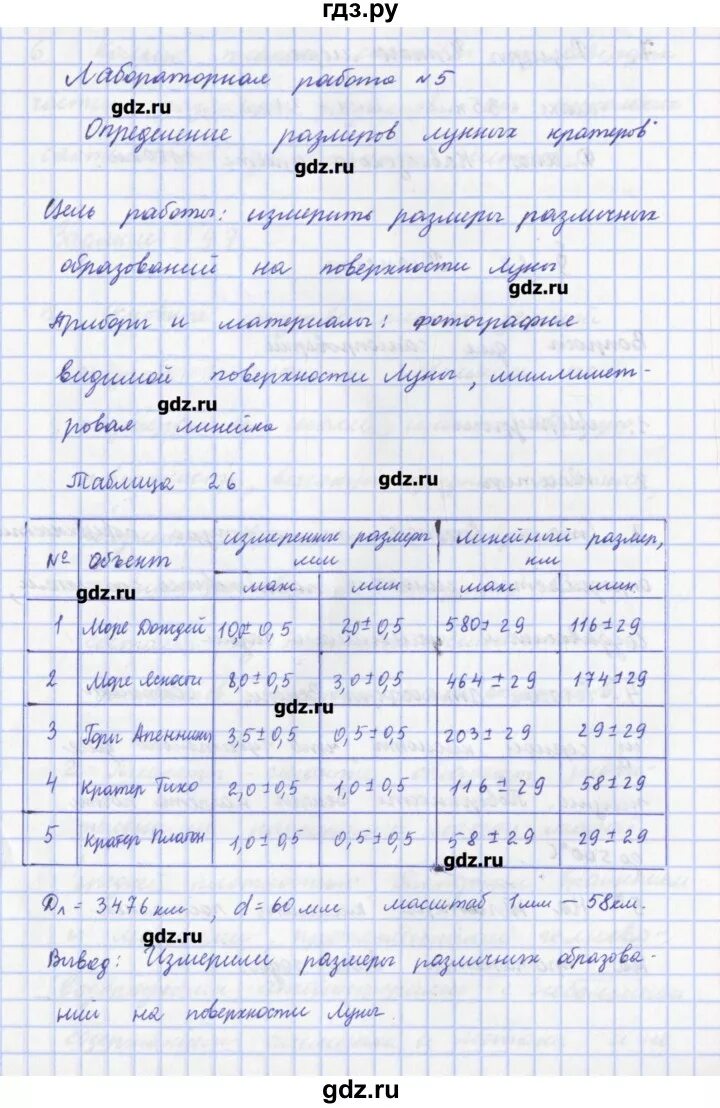 гдз.ру
Лабораторная работа №5
gdz.ru
"Определение размеров лунных кратеров"
gdz.ru
Цель работы: измерить размеры различных
образований на поверхности Луны
gdz.ru
Приборы и материалы: фотография
видимой поверхности Луны, миллимет-
gdz.ru
ровая линейка
Таблица 26
gdz.ru
№ Объект измеренные размеры, мм линейный размер, км
макс мин макс мин
gdz.ru
1 Море Дождей 10,0±0,5 2,0±0,5 580±29 116±29
2 Море Ясности 8,0±0,5 3,0±0,5 464±29 174±29
gdz.ru
3 Горы Апеннины 3,5±0,5 0,5±0,5 203±29 29±29
4 Кратер Тихо 2,0±0,5 1,0±0,5 116±29 58±29
5 Кратер Платон 1,0±0,5 0,5±0,5 58±29 29±29
gdz.ru
Dл = 3476 км, d = 60 мм масштаб 1 мм – 58 км.
gdz.ru
Вывод: Измерили размеры различных образова-
ний на поверхности Луны.
gdz.ru